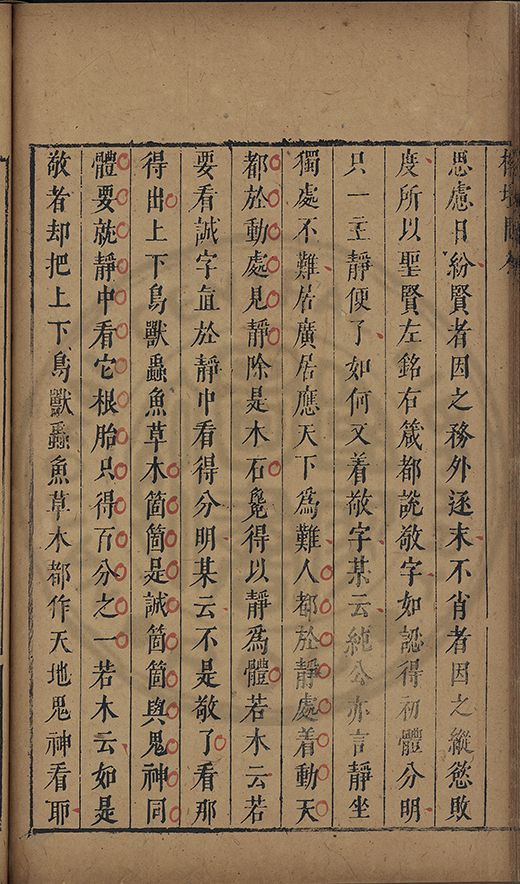 思慮日紛賢者因之務外逐末不肖者因之縱慾敗
度所以聖賢左銘右箴都說敬字如認得初體分明
只一主靜便了如何又着敬字某云純公亦言靜坐
獨處不難居廣居應天下為難人都於靜處着動天
都於動處見靜除是木石覺得以靜為體若木云若
要看誠字直於靜中看得分明某云不是敬了看那
得出上下鳥獸蟲魚草木箇箇是誠箇箇與鬼神同
體要就靜中看它根胎只得百分之一若木云如是
敬者却把上下鳥獸蟲魚草木都作天地鬼神看耶